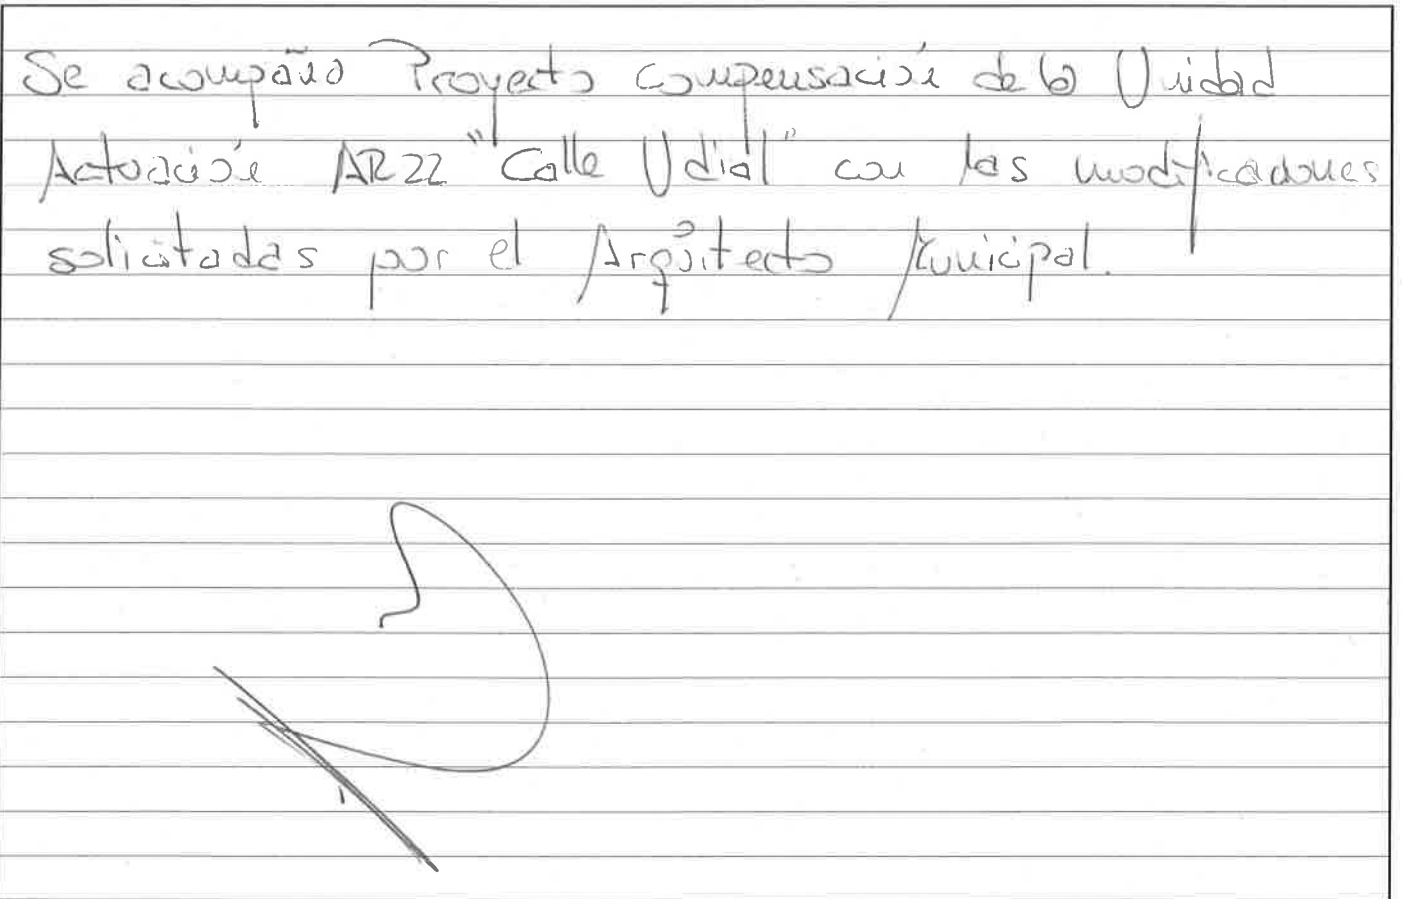 Se acompaña Proyecto Compensación de la Unidad
Actuación AR22 "Calle Udial" con las modificaciones
solicitadas por el Arquitecto Municipal.